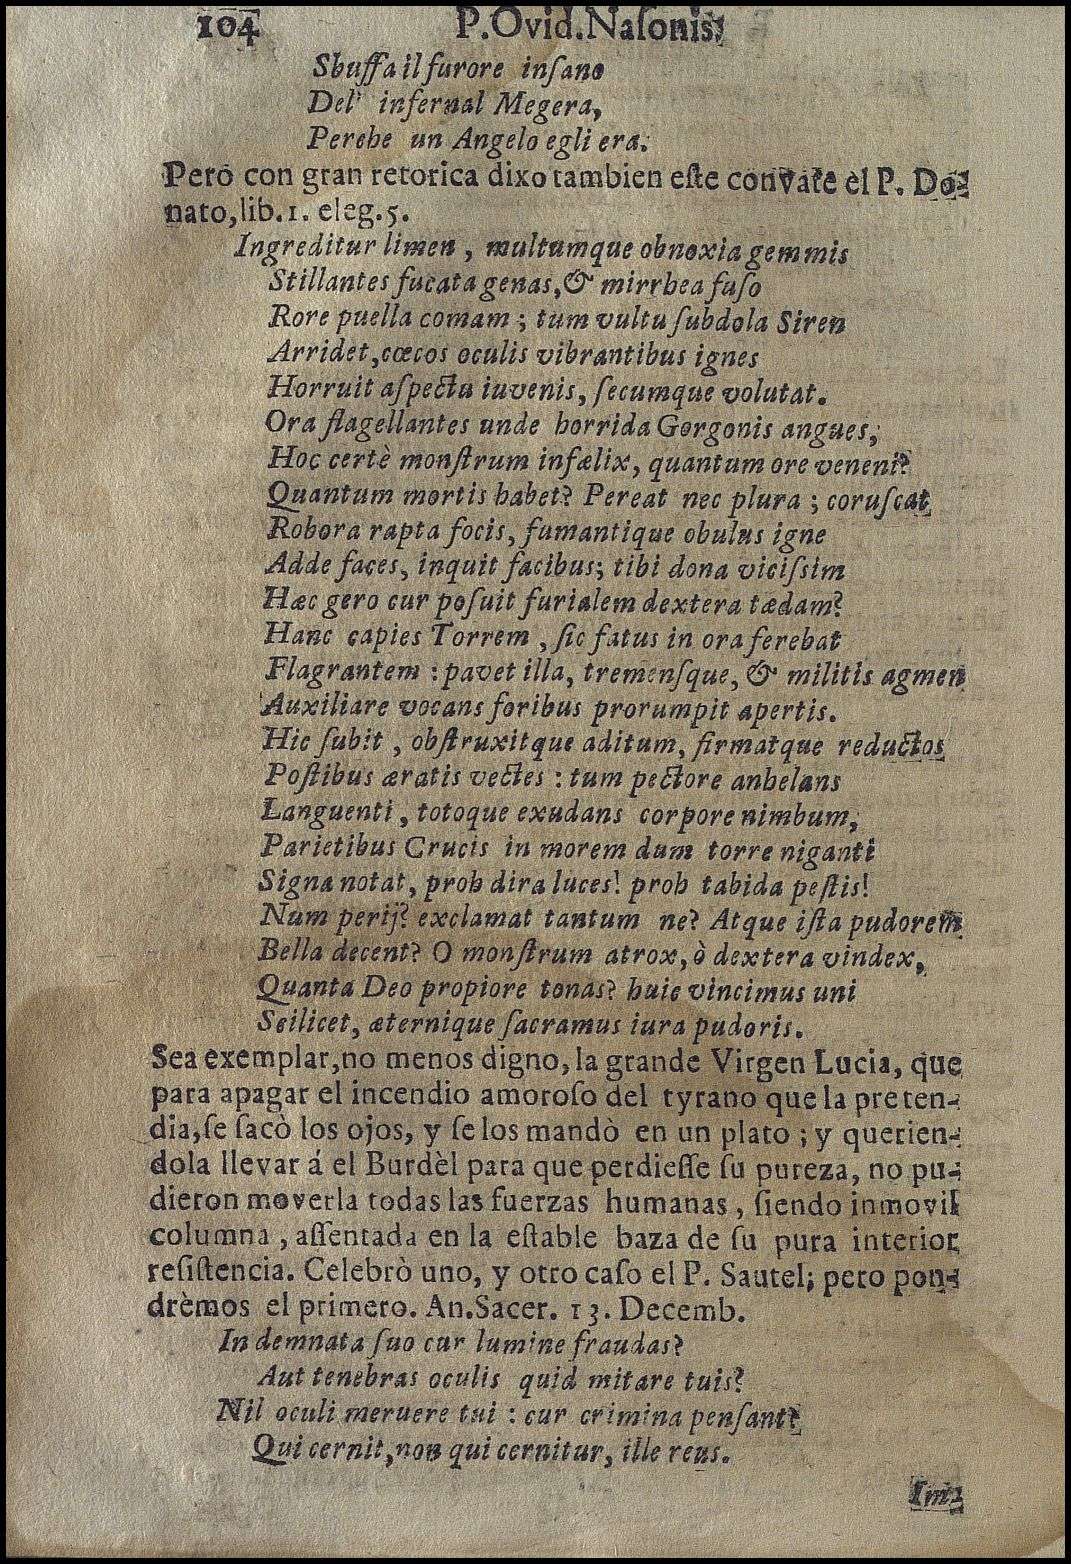 104 P.Ovid.Naſonis.
Sbuffa il furore inſano
Del' infernal Megera,
Perche un Angelo egli era.
Pero con gran retorica dixo tambien eſte convate el P. Do-
nato, lib. 1. eleg. 5.
Ingreditur limen, multumque obnoxia gemmis
Stillantes fucata genas, & mirrhea fuſo
Rore puella comam; tum vultu ſubdola Siren
Arridet, cœcos oculis vibrantibus ignes
Horruit aſpectu iuvenis, ſecumque volutat.
Ora flagellantes unde horrida Gorgonis angues,
Hoc certè monſtrum infælix, quantum ore veneni?
Quantum mortis habet? Pereat nec plura; coruſcat
Robora rapta focis, fumantique obulus igne
Adde faces, inquit facibus; tibi dona viciſsim
Hæc gero cur poſuit furialem dextera tædam?
Hanc capies Torrem, ſic fatus in ora ferebat
Flagrantem: pavet illa, tremenſque, & militis agmen
Auxiliare vocans foribus prorumpit apertis.
Hic ſubit, obſtruxitque aditum, firmatque reductos
Poſtibus æratis vectes: tum pectore anhelans
Languenti, totoque exudans corpore nimbum,
Parietibus Crucis in morem dum torre niganti
Signa notat, proh dira luces! proh tabida peſtis!
Num perij? exclamat tantum ne? Atque iſta pudorem
Bella decent? O monſtrum atrox, ò dextera vindex,
Quanta Deo propiore tonas? huic vincimus uni
Scilicet, æternique ſacramus iura pudoris.
Sea exemplar, no menos digno, la grande Virgen Lucia, que
para apagar el incendio amoroſo del tyrano que la preten-
dia, ſe ſacò los ojos, y ſe los mandò en un plato; y querien-
dola llevar á el Burdèl para que perdieſſe ſu pureza, no pu-
dieron moverla todas las fuerzas humanas, ſiendo inmovil
columna, aſſentada en la eſtable baza de ſu pura interior
reſiſtencia. Celebrò uno, y otro caſo el P. Sautel; pero pon-
drèmos el primero. An.Sacer. 13. Decemb.
In demnata ſuo cur lumine fraudas?
Aut tenebras oculis quid mitare tuis?
Nil oculi meruere tui: cur crimina penſant?
Qui cernit, non qui cernitur, ille reus.
Im-